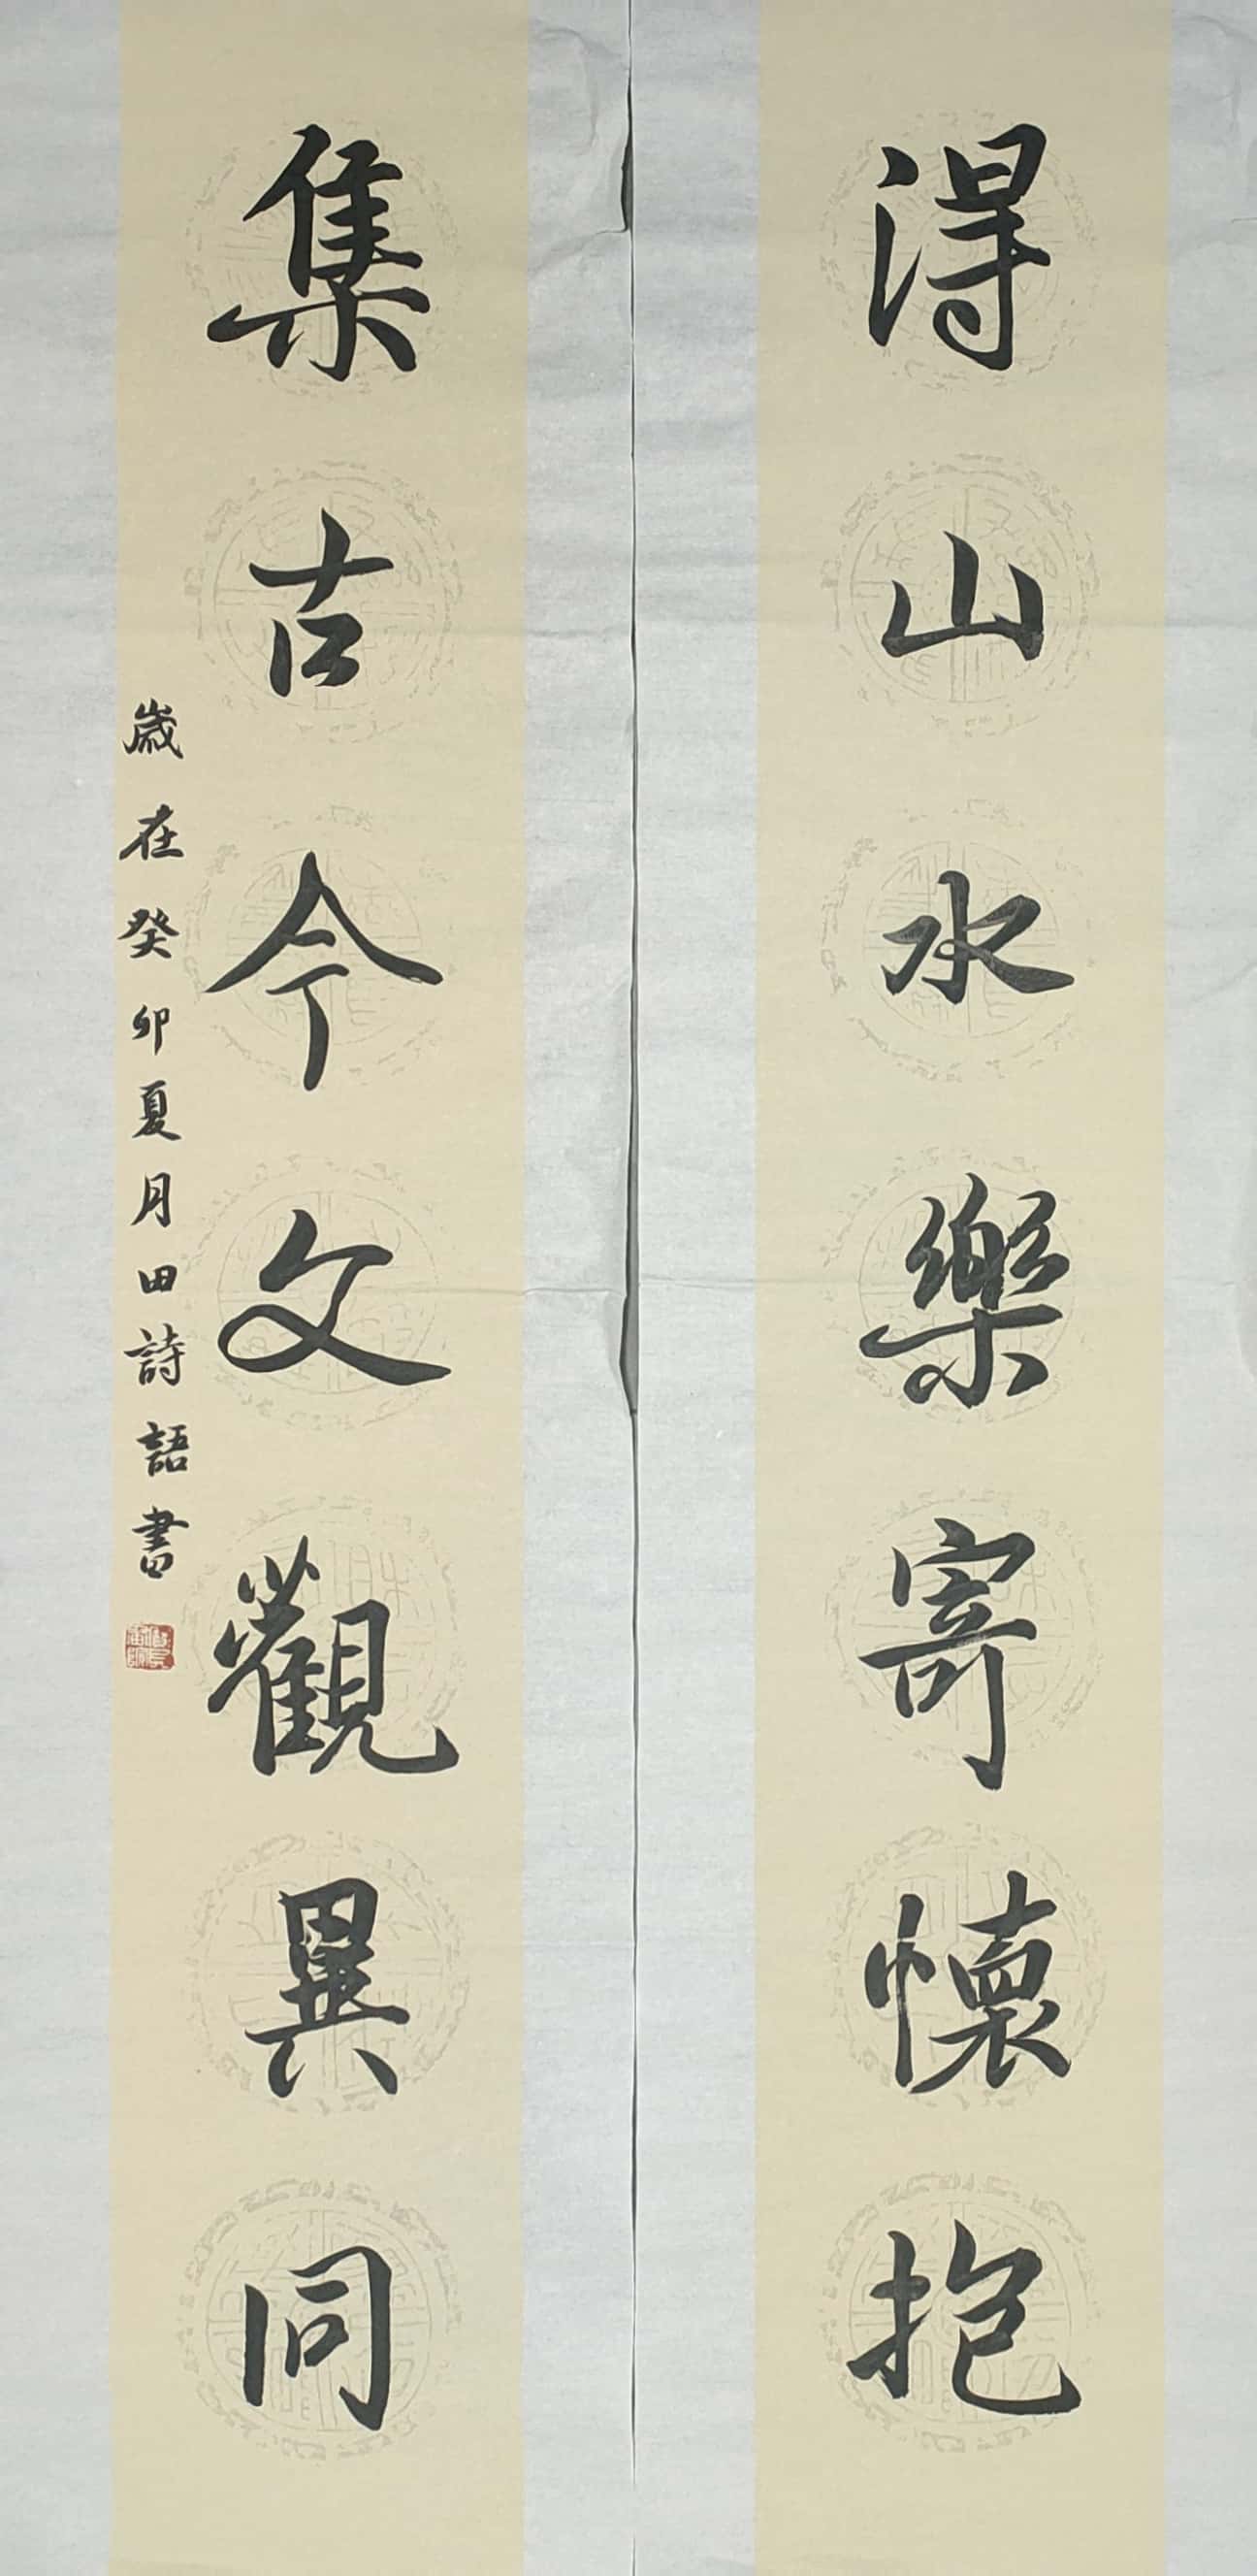 得山水樂寄懷抱
集古今文觀異同
歲在癸卯夏月田詩語書